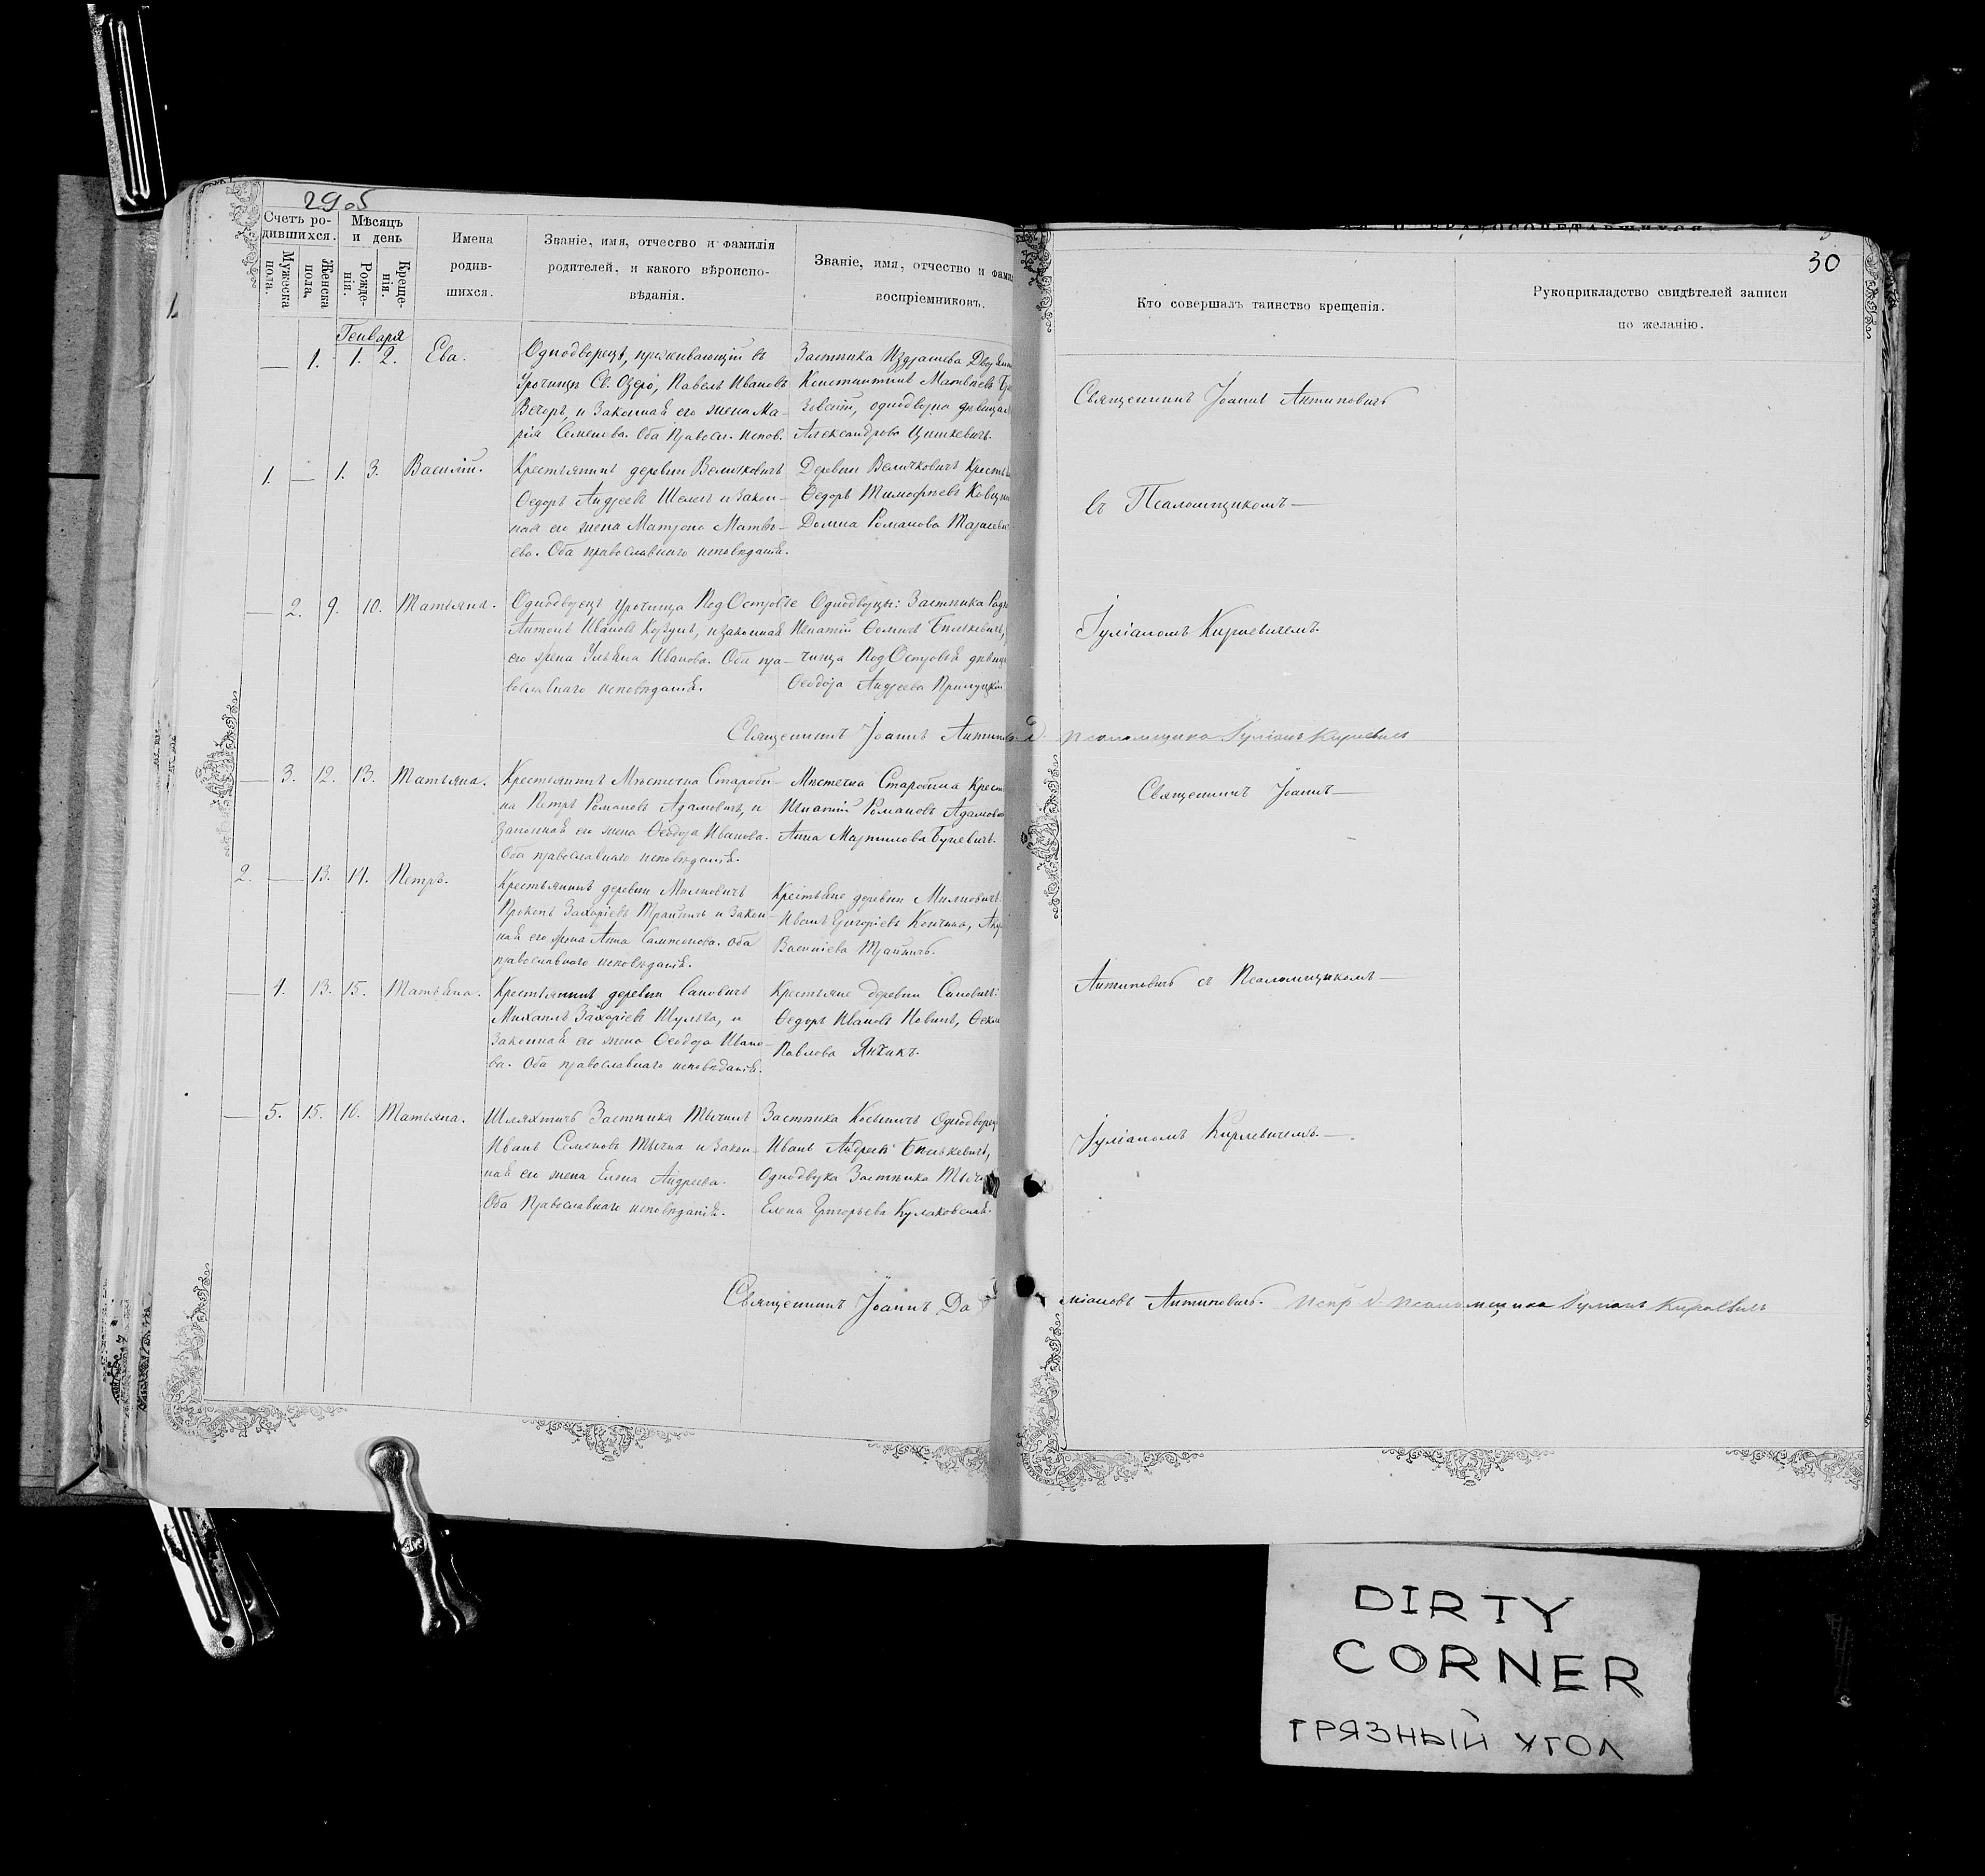 29об
Счетъ ро-
дившихся.
Мѣсяцъ
и день
Имена
родив-
шихся.
Званіе, имя, отчество и фамилія
родителей, и какого вѣроиспо-
вѣданія.
Званіе, имя, отчество и фами
воспріемниковъ.
Мужеска
пола.
Женска
пола.
Рожде-
нія.
Креще-
нія.
Кто совершалъ таинство крещенія.
Рукоприкладство свидѣтелей записи
по желанію.
30
Генваря
— 1. 1. 2. Ева.
Однодворецъ, проживающій въ
Урочищѣ Св. Озеро, Павелъ Ивановъ
Вечоръ, и Законная его жена Ма-
рія Семенова. Оба Правосл. испов.
Застѣнка Издрашева
Константинъ Матвѣевъ
однодворка дѣвица
Александрова Цишкевичъ.
Священникъ Іоаннъ Антиповичъ
1. — 1. 3. Василій.
Крестьянинъ деревни Величковичъ
Ѳеодоръ Андреевъ Шелегъ и Закон-
ная его жена Матрона Матвѣ-
ева. Оба православнаго исповѣданія.
Деревни Величковичъ Кресть
Ѳеодоръ Тимофѣевъ
Домна Романова Тарасеви
съ Псаломщикомъ—
— 2. 9. 10. Татьяна.
Однодворецъ Урочища ПодОстровье
Антонъ Ивановъ Корзунъ, и законная
его жена Ульяна Иванова. Оба пра-
вославнаго исповѣданія.
Однодворцы: Застѣнка
Игнатій Ѳоминъ Бинкевичъ,
чища ПодОстровья дѣвица
Ѳеодора Андреева
Іуліаномъ Киркевичемъ.
Священникъ Іоаннъ Антипов. Д. псаломщика Іуліанъ Киркевичъ
— 3. 12. 13. Татьяна.
Крестьянинъ Мѣстечка Староби-
на Петръ Романовъ Адамовичъ, и
Законная его жена Ѳеодора Иванова.
Оба православнаго исповѣданія.
Мѣстечка Старобина Крест
Игнатій Романовъ Адамов
Анна Мартинова Буневичъ.
Священникъ Іоаннъ—
2. — 13. 14. Петръ.
Крестьянинъ деревни Милковичъ
Прокопъ Захаріевъ Трайничъ и Закон-
ная его жена Анна Самсонова. Оба
православнаго исповѣданія.
Крестьяне деревни Милковичъ:
Иванъ Григоріевъ
Василіева Трайничъ.
— 4. 13. 15. Татьяна.
Крестьянинъ деревни Саковичъ
Михаилъ Захаріевъ Шульга, и
Законная его жена Ѳеодора Ивано-
ва. Оба православнаго исповѣданія.
Крестьяне деревни Саковичъ:
Ѳеодоръ Ивановъ Новикъ,
Павлова Янчикъ.
Антиповичъ съ Псаломщикомъ—
— 5. 15. 16. Татьяна.
Шляхтичъ Застѣнка Тычинъ
Иванъ Семеновъ Тычина и Закон-
ная его жена Елена Андреева.
Оба Православнаго исповѣданія.
Застѣнка Косыничъ Однодворец
Иванъ Андреевъ Бинкевичъ,
Однодворка Застѣнка Тычи
Елена Григорьева Кулаковская.
Іуліаномъ Киркевичемъ.—
Священникъ Іоаннъ Да міановъ Антиповичъ. Испр. д. псаломщика Іуліанъ Киркевичъ
DIRTY
CORNER
ГРЯЗНЫЙ УГОЛ